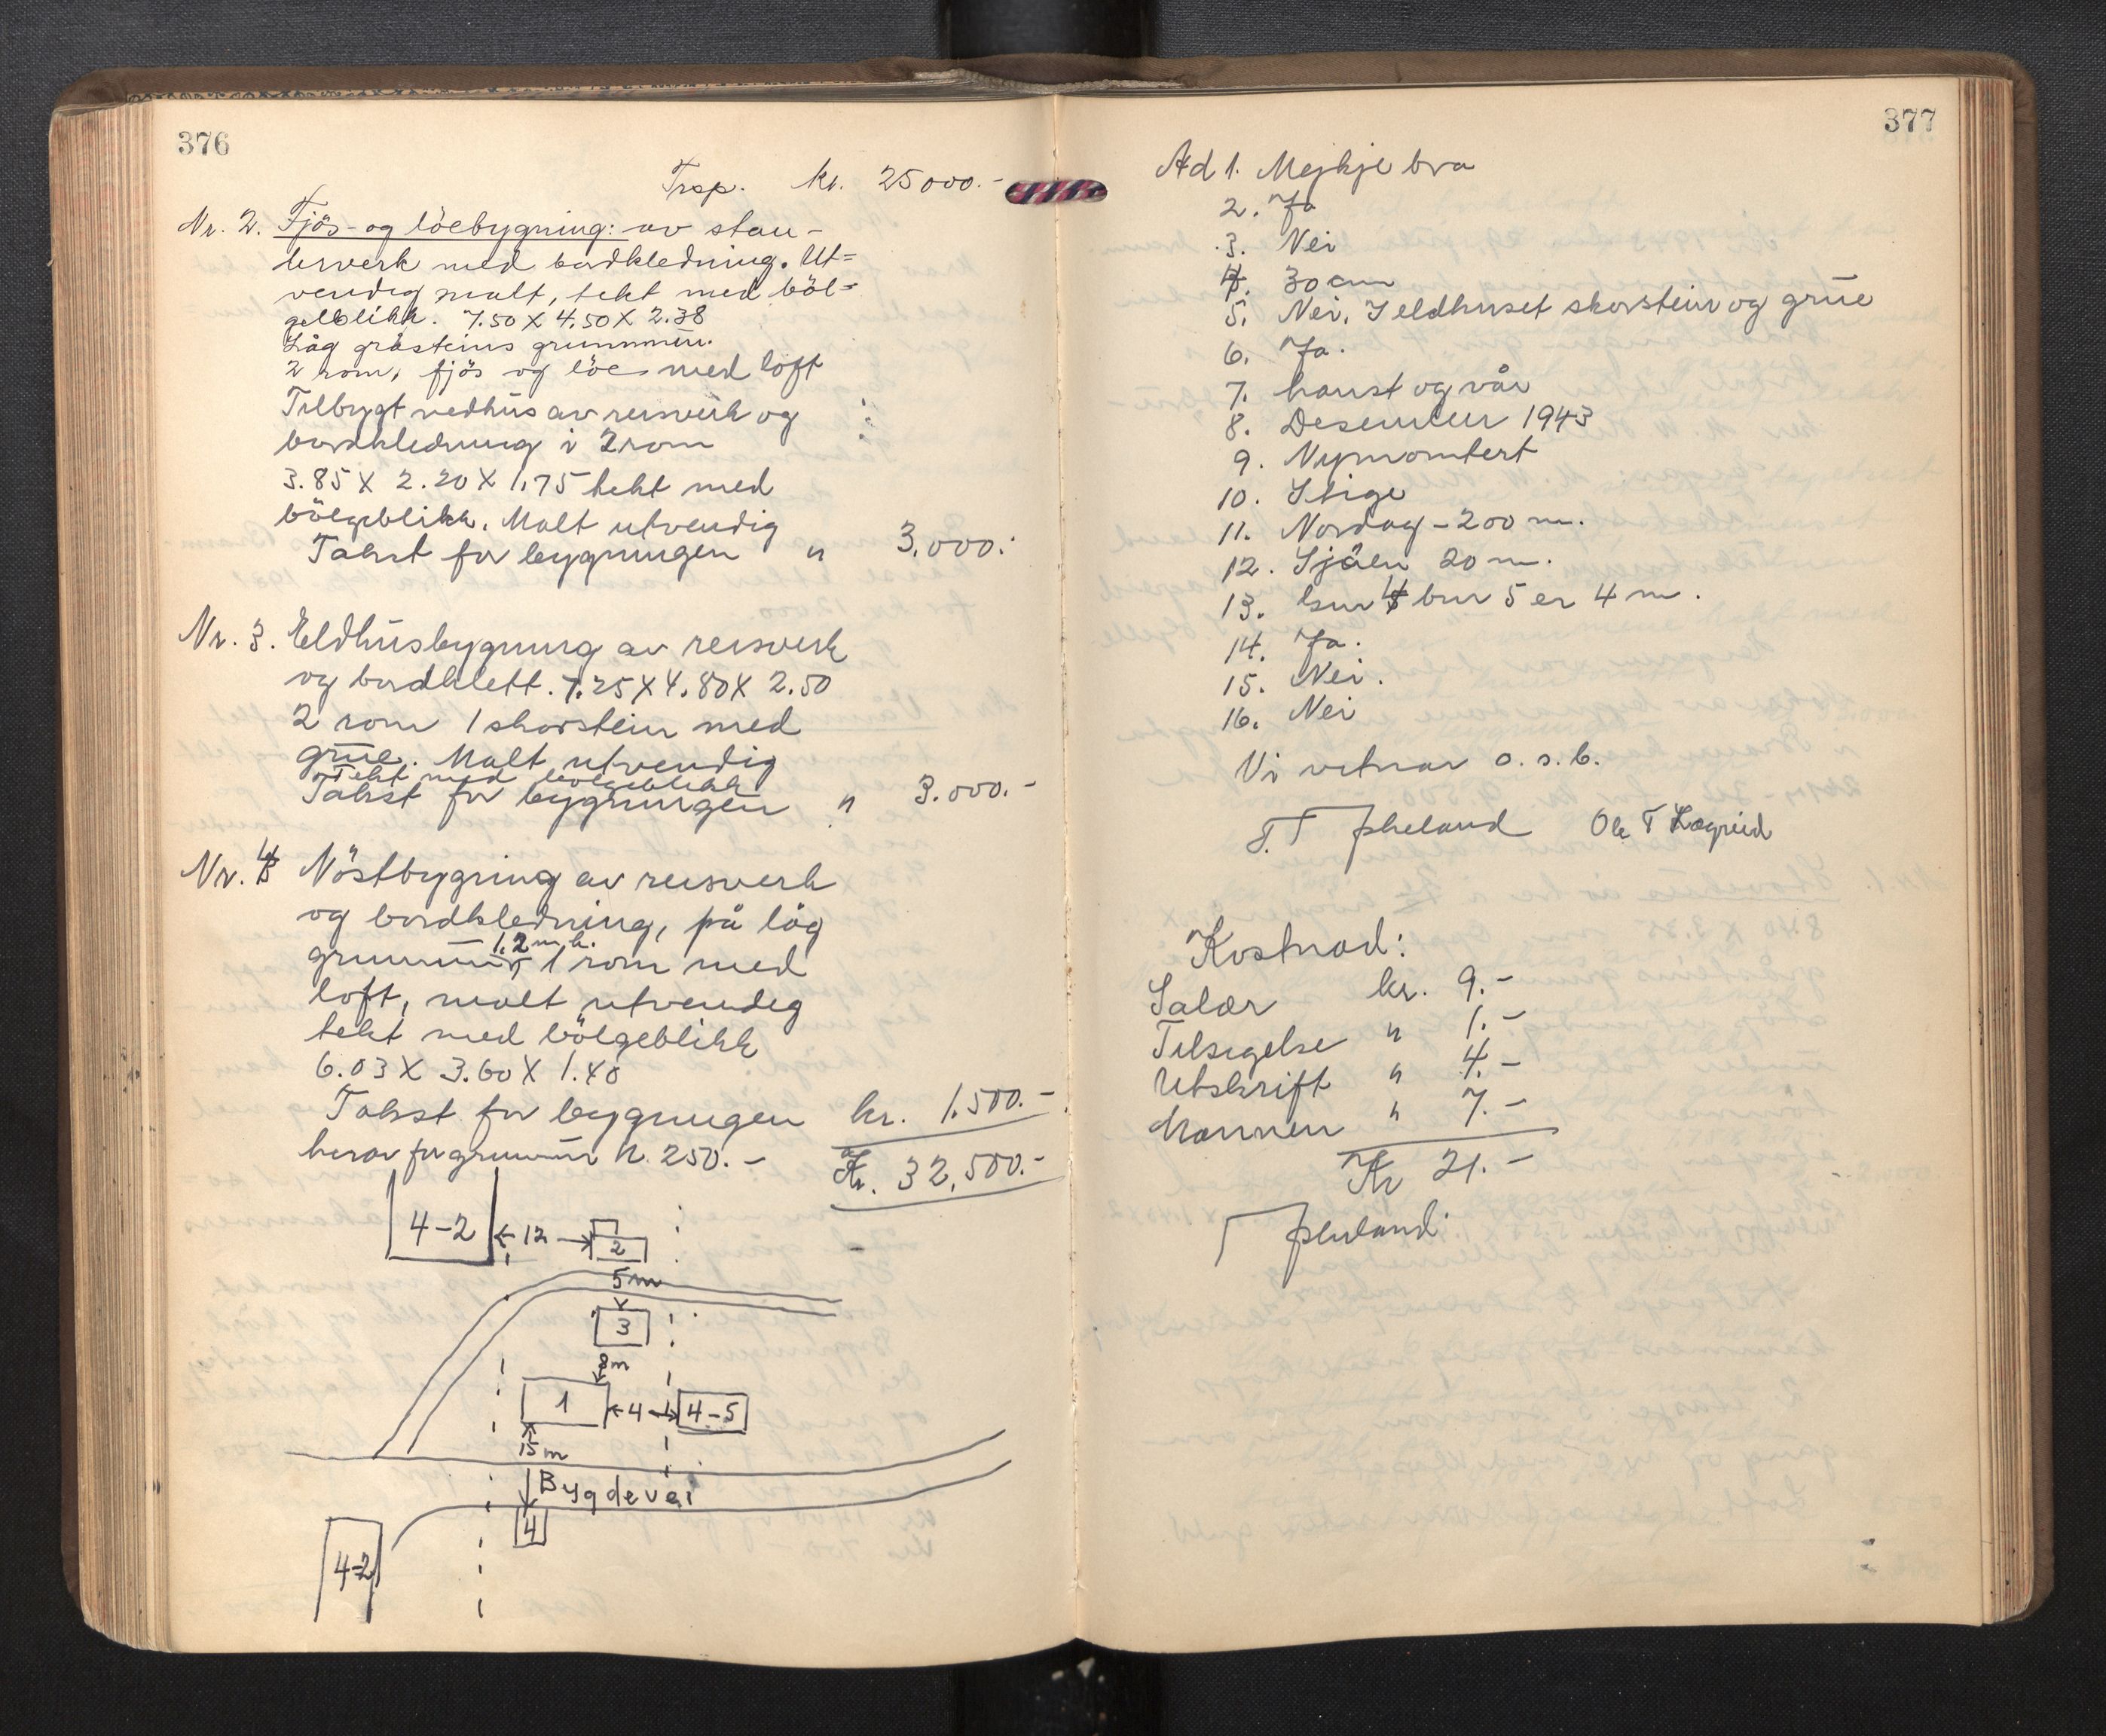 376
Trsp. kr. 25000.-
Nr. 2. Fjös- og löebygning: av stau-
rsverk med bordkledning. Ut=
vendig malt, tekt med böl=
gelblikk. 7.50 X 4.50 X 2.38
Låg gråsteins grunnmur.
2 rom, fjös og löe med loft
Tilbygt vedhus av reisverk og
bordkledning i 2 rom
3.85 X 2.20 X 1.75 tekt med
bölgeblikk. Malt utvendig
Takst for bygningen " 3.000.-
Nr. 3. Eldhusbygning av reisverk
og bordklett. 7.25 X 4.80 X 2.50
2 rom 1 skorstein med
grue. Malt utvendig
Tekt med bölgeblikk
Takst for bygningen " 3.000.-
Nr. 4 Nöstbygning av reisverk
og bordkledning, på låg
grunnmur 1.2 m h. 1 rom med
loft, malt utvendig
tekt med bölgeblikk
6.03 X 3.60 X 1.40
Takst for bygningen kr. 1.500.-
herav for grunnmur kr. 250.- Kr. 32,500.-
4-2 ←12→ 2
5m
3
8m
1 ←4→ 4-5
15m
Bygdevei
4
4-2
377
Ad 1. Mejkje bra
2. Ja
3. Nei
4. 30 cm
5. Nei. I eldhuset skorstein og grue
6. Ja.
7. haust og vår
8. Desember 1943
9. Nymontert
10. Stige
11. Nordag - 200 m.
12. Sjöen 20 m.
13. bnr 4 bnr 5 er 4 m.
14. Ja.
15. Nei.
16. Nei
Vi vitnar o. s. b.
T. T Ole T Lægreid
Kostnad:
Salær kr. 9.-
Tilsigelse " 1.-
Utskrift " 4.-
Mannen " 7.-
Kr 21.-